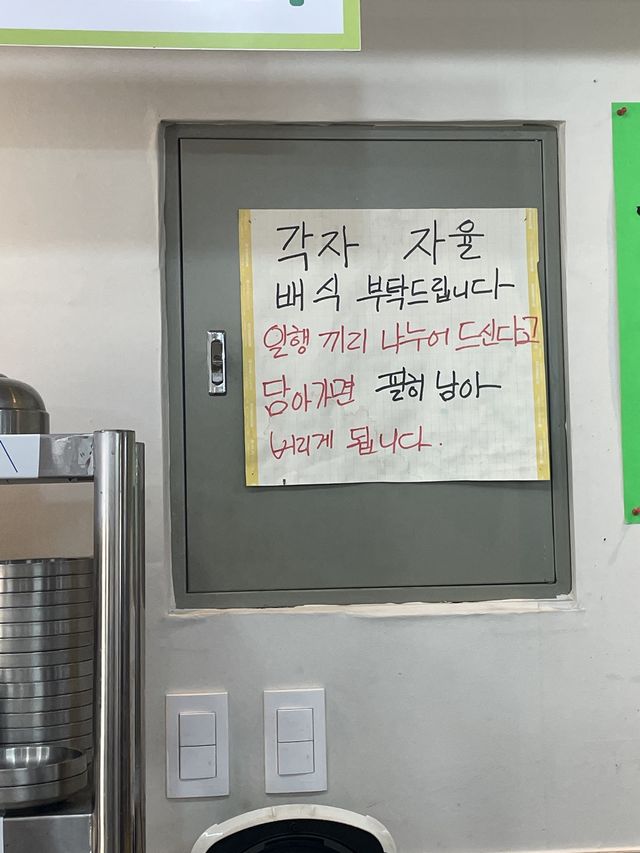 각자 자율
배식 부탁드립니다
일행 끼리 나누어 드신다고
담아가면 필히 남아
버리게 됩니다.